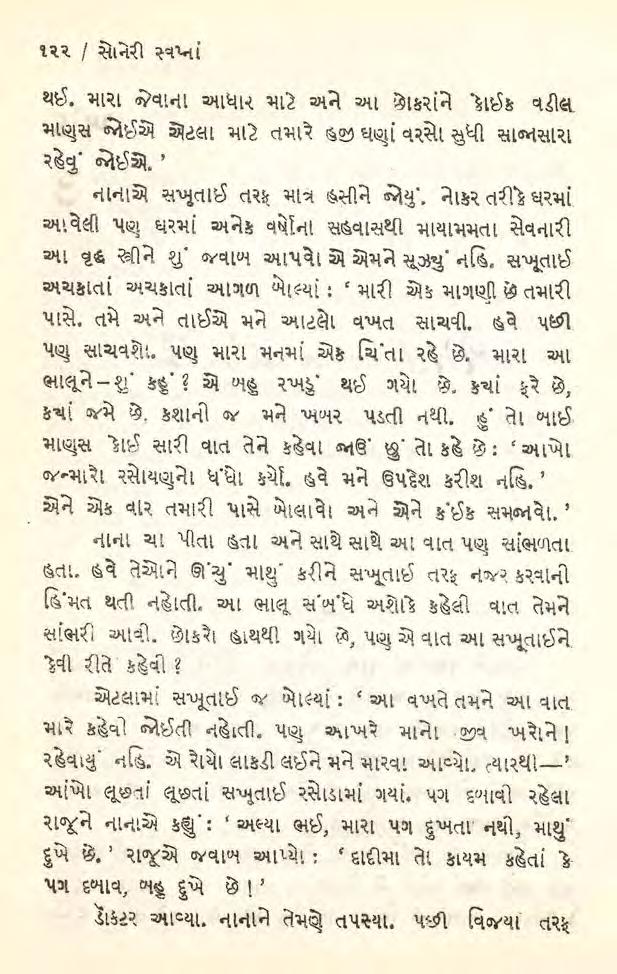 ૧૨૨ / સોનેરી સ્વપ્નાં
થઈ. મારા જેવાના આધાર માટે અને આ છોકરાંને કોઈક વડીલ
માણુસ જોઈએ એટલા માટે તમારે હજી ઘણાં વરસો સુધી સાજાસારા
રહેવું જોઈએ.’
નાનાએ સખુતાઈ તરફ માત્ર હસીને જોયું. નોકર તરીકે ઘરમાં
આવેલી પણ ઘરમાં અનેક વર્ષોના સહવાસથી માયામમતા સેવનારી
આ વૃદ્ધ સ્ત્રીને શું જવાબ આપવો એ એમને સૂઝ્યું નહિ. સખૂતાઈ
અચકાતાં અચકાતાં આગળ બોલ્યાં : ‘મારી એક માગણી છે તમારી
પાસે. તમે અને તાઈએ મને આટલો વખત સાચવી. હવે પછી
પણ સાચવશો. પણ મારા મનમાં એક ચિંતા રહે છે. મારા આ
ભાલૂને–શું કહું ? એ બહુ રખડું થઈ ગયો છે. કચાં ફરે છે,
કચાં જમે છે. કશાની જ મને ખબર પડતી નથી. હું તો બાઈ
માણુસ કોઈ સારી વાત તેને કહેવા જાઉં છું તો કહે છે : ‘આખો
જન્મારો રસોયણનો ધંધો કર્યો. હવે મને ઉપદેશ કરીશ નહિ.’
એને એક વાર તમારી પાસે બોલાવો અને એને કંઈક સમજાવો.’
નાના ચા પીતા હતા અને સાથે સાથે આ વાત પણ સાંભળતા
હતા. હવે તેઓને ઊંચું માથું કરીને સખુતાઈ તરફ નજર કરવાની
હિંમત થતી નહોતી. આ ભાલૂ સંબંધે અશોકે કહેલી વાત તેમને
સાંભરી આવી. છોકરો હાથથી ગયો છે, પણ એ વાત આ સખૂતાઈને
કેવી રીતે કહેવી ?
એટલામાં સખૂતાઈ જ બોલ્યાં : ‘આ વખતે તમને આ વાત
મારે કહેવી જોઈતી નહોતી. પણ આખરે માનો જીવ ખરોને !
રહેવાયું નહિ. એ રોયો લાકડી લઈને મને મારવા આવ્યો. ત્યારથી—’
આંખો લૂછતાં લૂછતાં સખુતાઈ રસોડામાં ગયાં. પગ દબાવી રહેલા
રાજૂને નાનાએ કહ્યું : ‘અલ્યા ભઈ, મારા પગ દુખતા નથી, માથું
દુખે છે.’ રાજૂએ જવાબ આપ્યો : ‘દાદીમા તો કાયમ કહેતાં કે
પગ દબાવ, બહુ દુખે છે !’
ડૉક્ટર આવ્યા. નાનાને તેમણે તપસ્યા. પછી વિજયા તરફ